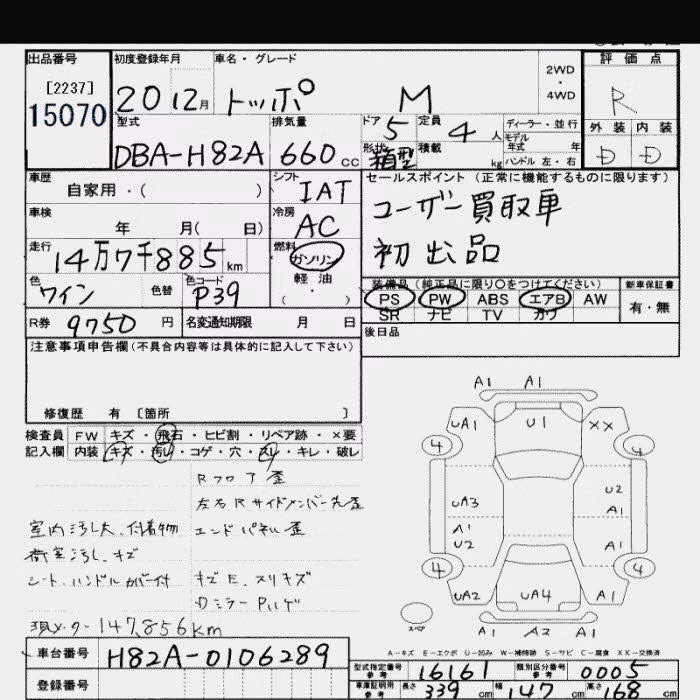 出品番号 初度登録年月 車名・グレード 2WD・4WD 評価点
[2237]
15070 20 12月 トッポ M R
型式 排気量 ドア 5 定員 4人 ディーラー・並行 外装 内装
DBA-H82A 660cc 形状 箱型 積載 kg モデル年式 年 ハンドル 左・右 D D
車歴 シフト セールスポイント (正常に機能するものに限ります)
自家用・( ) IAT ユーザー買取車
車検 年 月( 日) 冷房 AC 初出品
走行 14万7千885km 燃料 ガソリン 軽油 ( ・ )
色 ワイン 色替 色コード P39
装備品 (純正品に限り○をつけてください) 新車保証書
PS PW ABS エアB AW 有・無
SR ナビ TV カワ
R券 9750 円 名変通知期限 月 日 後日品
注意事項申告欄(不具合内容等は具体的に記入して下さい)
修復歴 有 [箇所 ]
検査員 FW キズ・飛石・ヒビ割・リペア跡・×要
記入欄 内装 キズ・汚レ・コゲ・穴・スレ・キレ・破レ
Rフロア歪
左右Rサイドメンバー先歪
室内汚レ大、付着物 エンドパネル歪
荷室汚レ、キズ
シート、ハンドルカバー付 キズE、スリキズ
DミラーPハゲ
現メーター147,856km
A1 A1
UA1 U1 XX
4 4
UA3 U2
A1 A1
U2 A1
4 4
UA2 UA4 A1
スペア A1 A2 A1
A-キズ E-エクボ U-凹み W-補修跡 S-サビ C-腐食 XX-交換済
車台番号 H82A-0106289
登録番号
型式指定番号 参考 16161 類別区分番号 参考 0005
車庫証明用 参考 長さ 339cm 幅 147cm 高さ 168cm